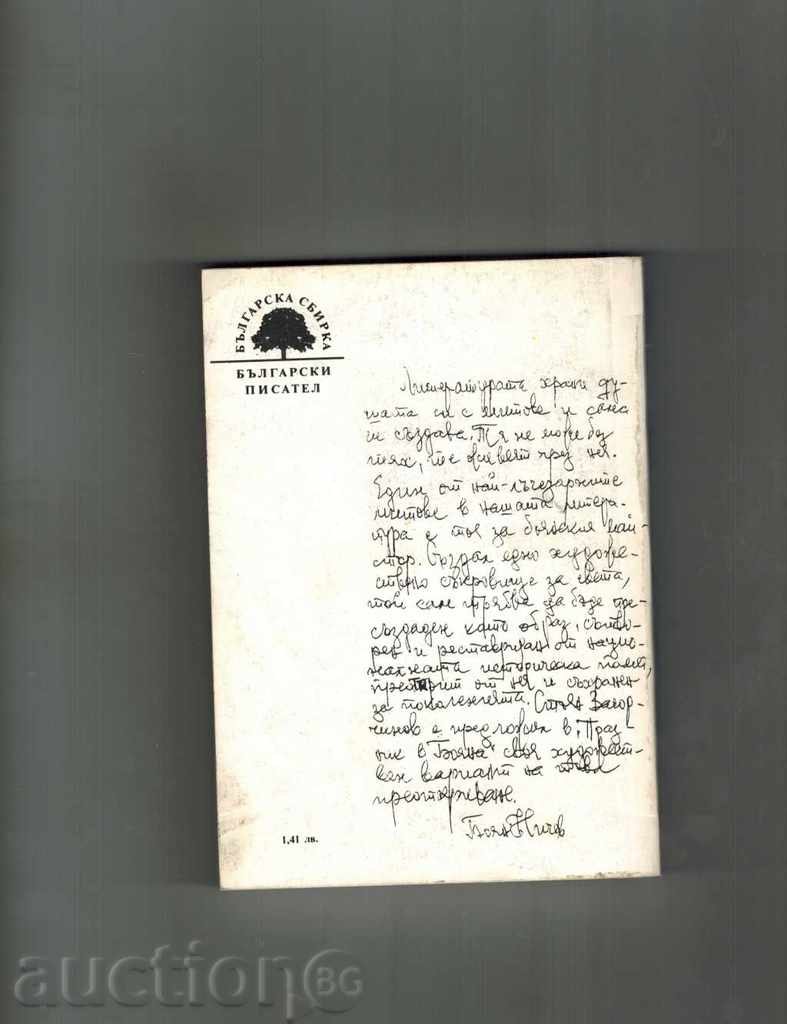 БЪЛГАРСКА СБИРКА
БЪЛГАРСКИ
ПИСАТЕЛ
Литературата храни ду-
шата си с митове и сама
ги създава. Тя не може без
тях, те живеят през нея.
Един от най-лъчезарните
митове в нашата литера-
тура е тоя за боянския май-
стор. Създал едно художе-
ствено съкровище за света,
той сам трябва да бъде пре-
създаден като образ, сътво-
рен и реставриран от нацио-
налната историческа памет,
от нея и съхранен
за поколенията. Стоян Загор-
чинов е предложил в „Праз-
ник в Бояна" своя художест-
вен вариант на това
1,41 лв.
Боян Ничев
auctionBG